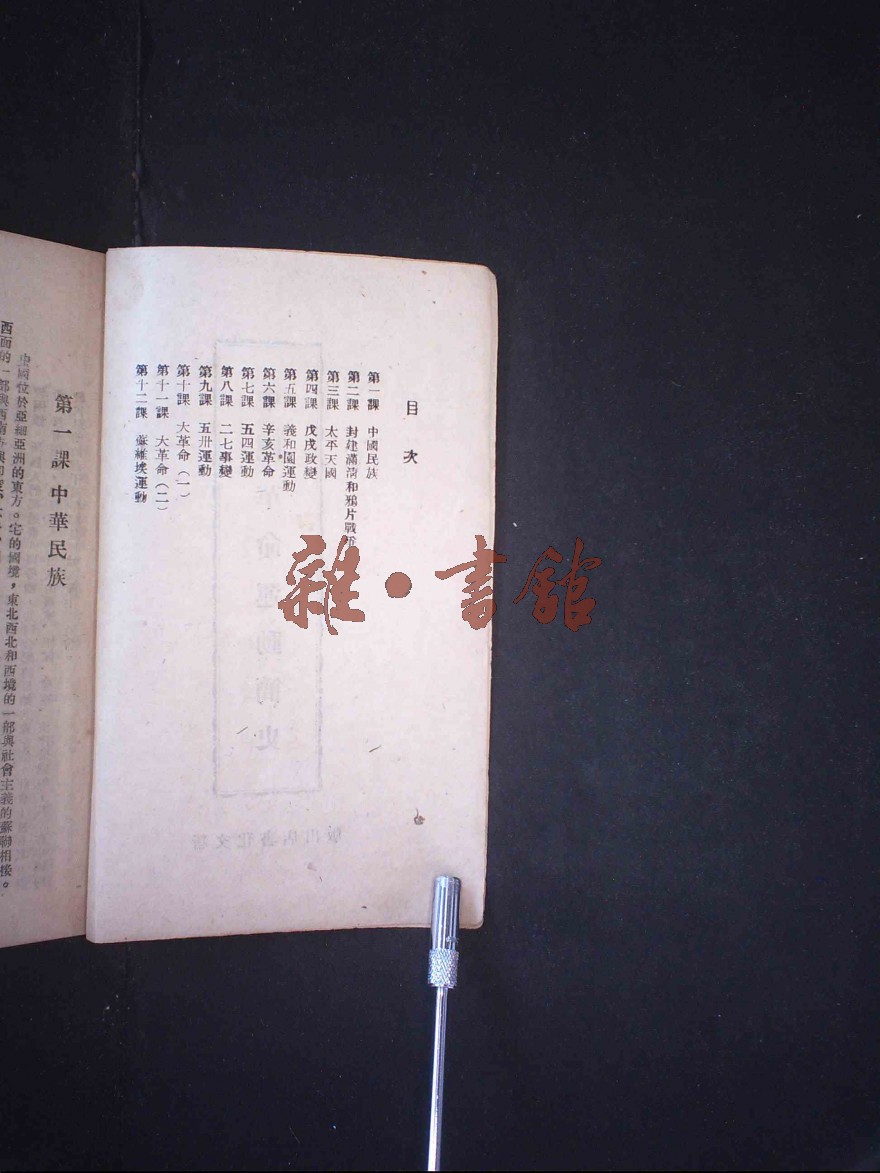 目次
第一課 中國民族
第二課 封建滿清和鴉片戰
第三課 太平天國
第四課 戊戌政變
第五課 義和園運動
第六課 辛亥革命
第七課 五四運動
第八課 二七事變
第九課 五卅運動
第十課 大革命(一)
第十一課 大革命(二)
第十二課 蘇維埃運動
雜·書館
革命運動簡史
第一課 中華民族
中國位於亞細亞洲的東方。它的國境,東北西北和西境的一部與社會主義的蘇聯相接。
西面的一部與西南